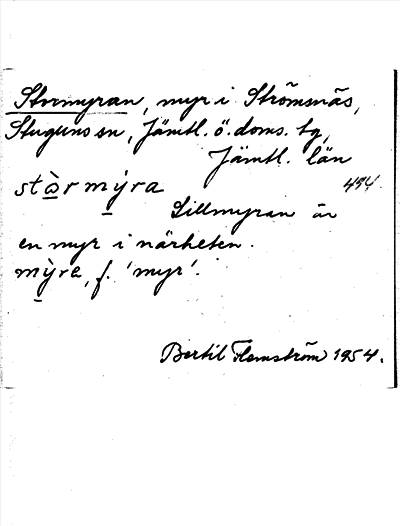 Stormyran, myr i Strömsnäs,
Stuguns sn, Jämtl. ö. doms. tg,
Jämtl. län
stàrmýra 454.
Lillmyran är
en myr i närheten.
mỳra, f. 'myr'.
Bertil Flemström 1954.